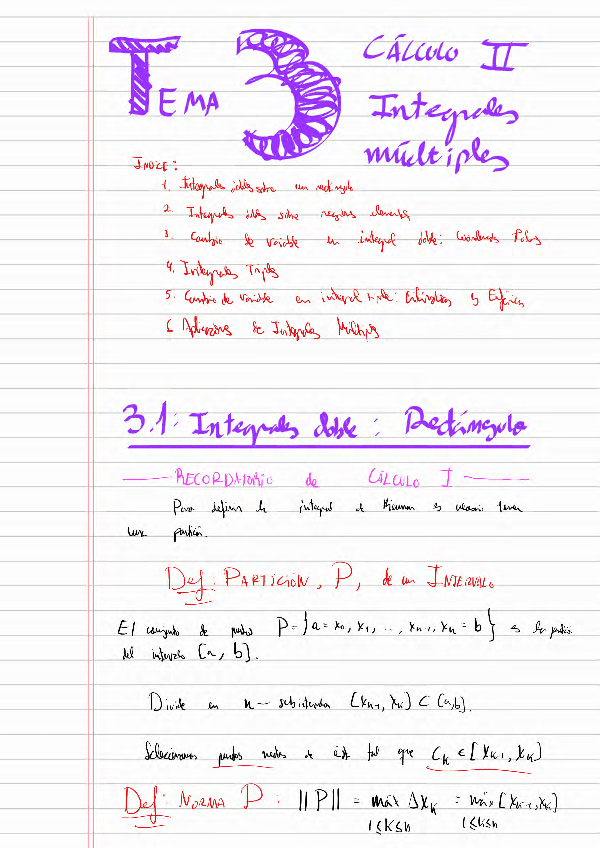 TEMA 3
CÁLCULO II
Integrales
múltiples
ÍNDICE:
1. Integrales dobles sobre un rectángulo
2. Integrales dobles sobre regiones elementales
3. Cambio de variable en integral doble: Coordenadas Polares
4. Integrales Triples
5. Cambio de variable en integral triple: Cilíndricas y Esféricas
6 Aplicaciones de Integrales Múltiples
3.1: Integrales doble: Rectángulo
RECORDATORIO de CÁLCULO I
Para definir la integral de Riemann es necesario tener
una partición.
Def: PARTICIÓN, P, de un INTERVALO
El conjunto de puntos P = {a = x₀, x₁, ..., xₙ₋₁, xₙ = b} es la partición
del intervalo [a, b].
Divide en n-- subintervalos [xₖ₋₁, xₖ] ⊂ [a,b].
Seleccionamos puntos medios de este tal que Cₖ ∈ [xₖ₋₁, xₖ]
Def: NORMA P : ||P|| = máx Δxₖ = máx [xₖ₋₁, xₖ]
1≤k≤n 1≤k≤n